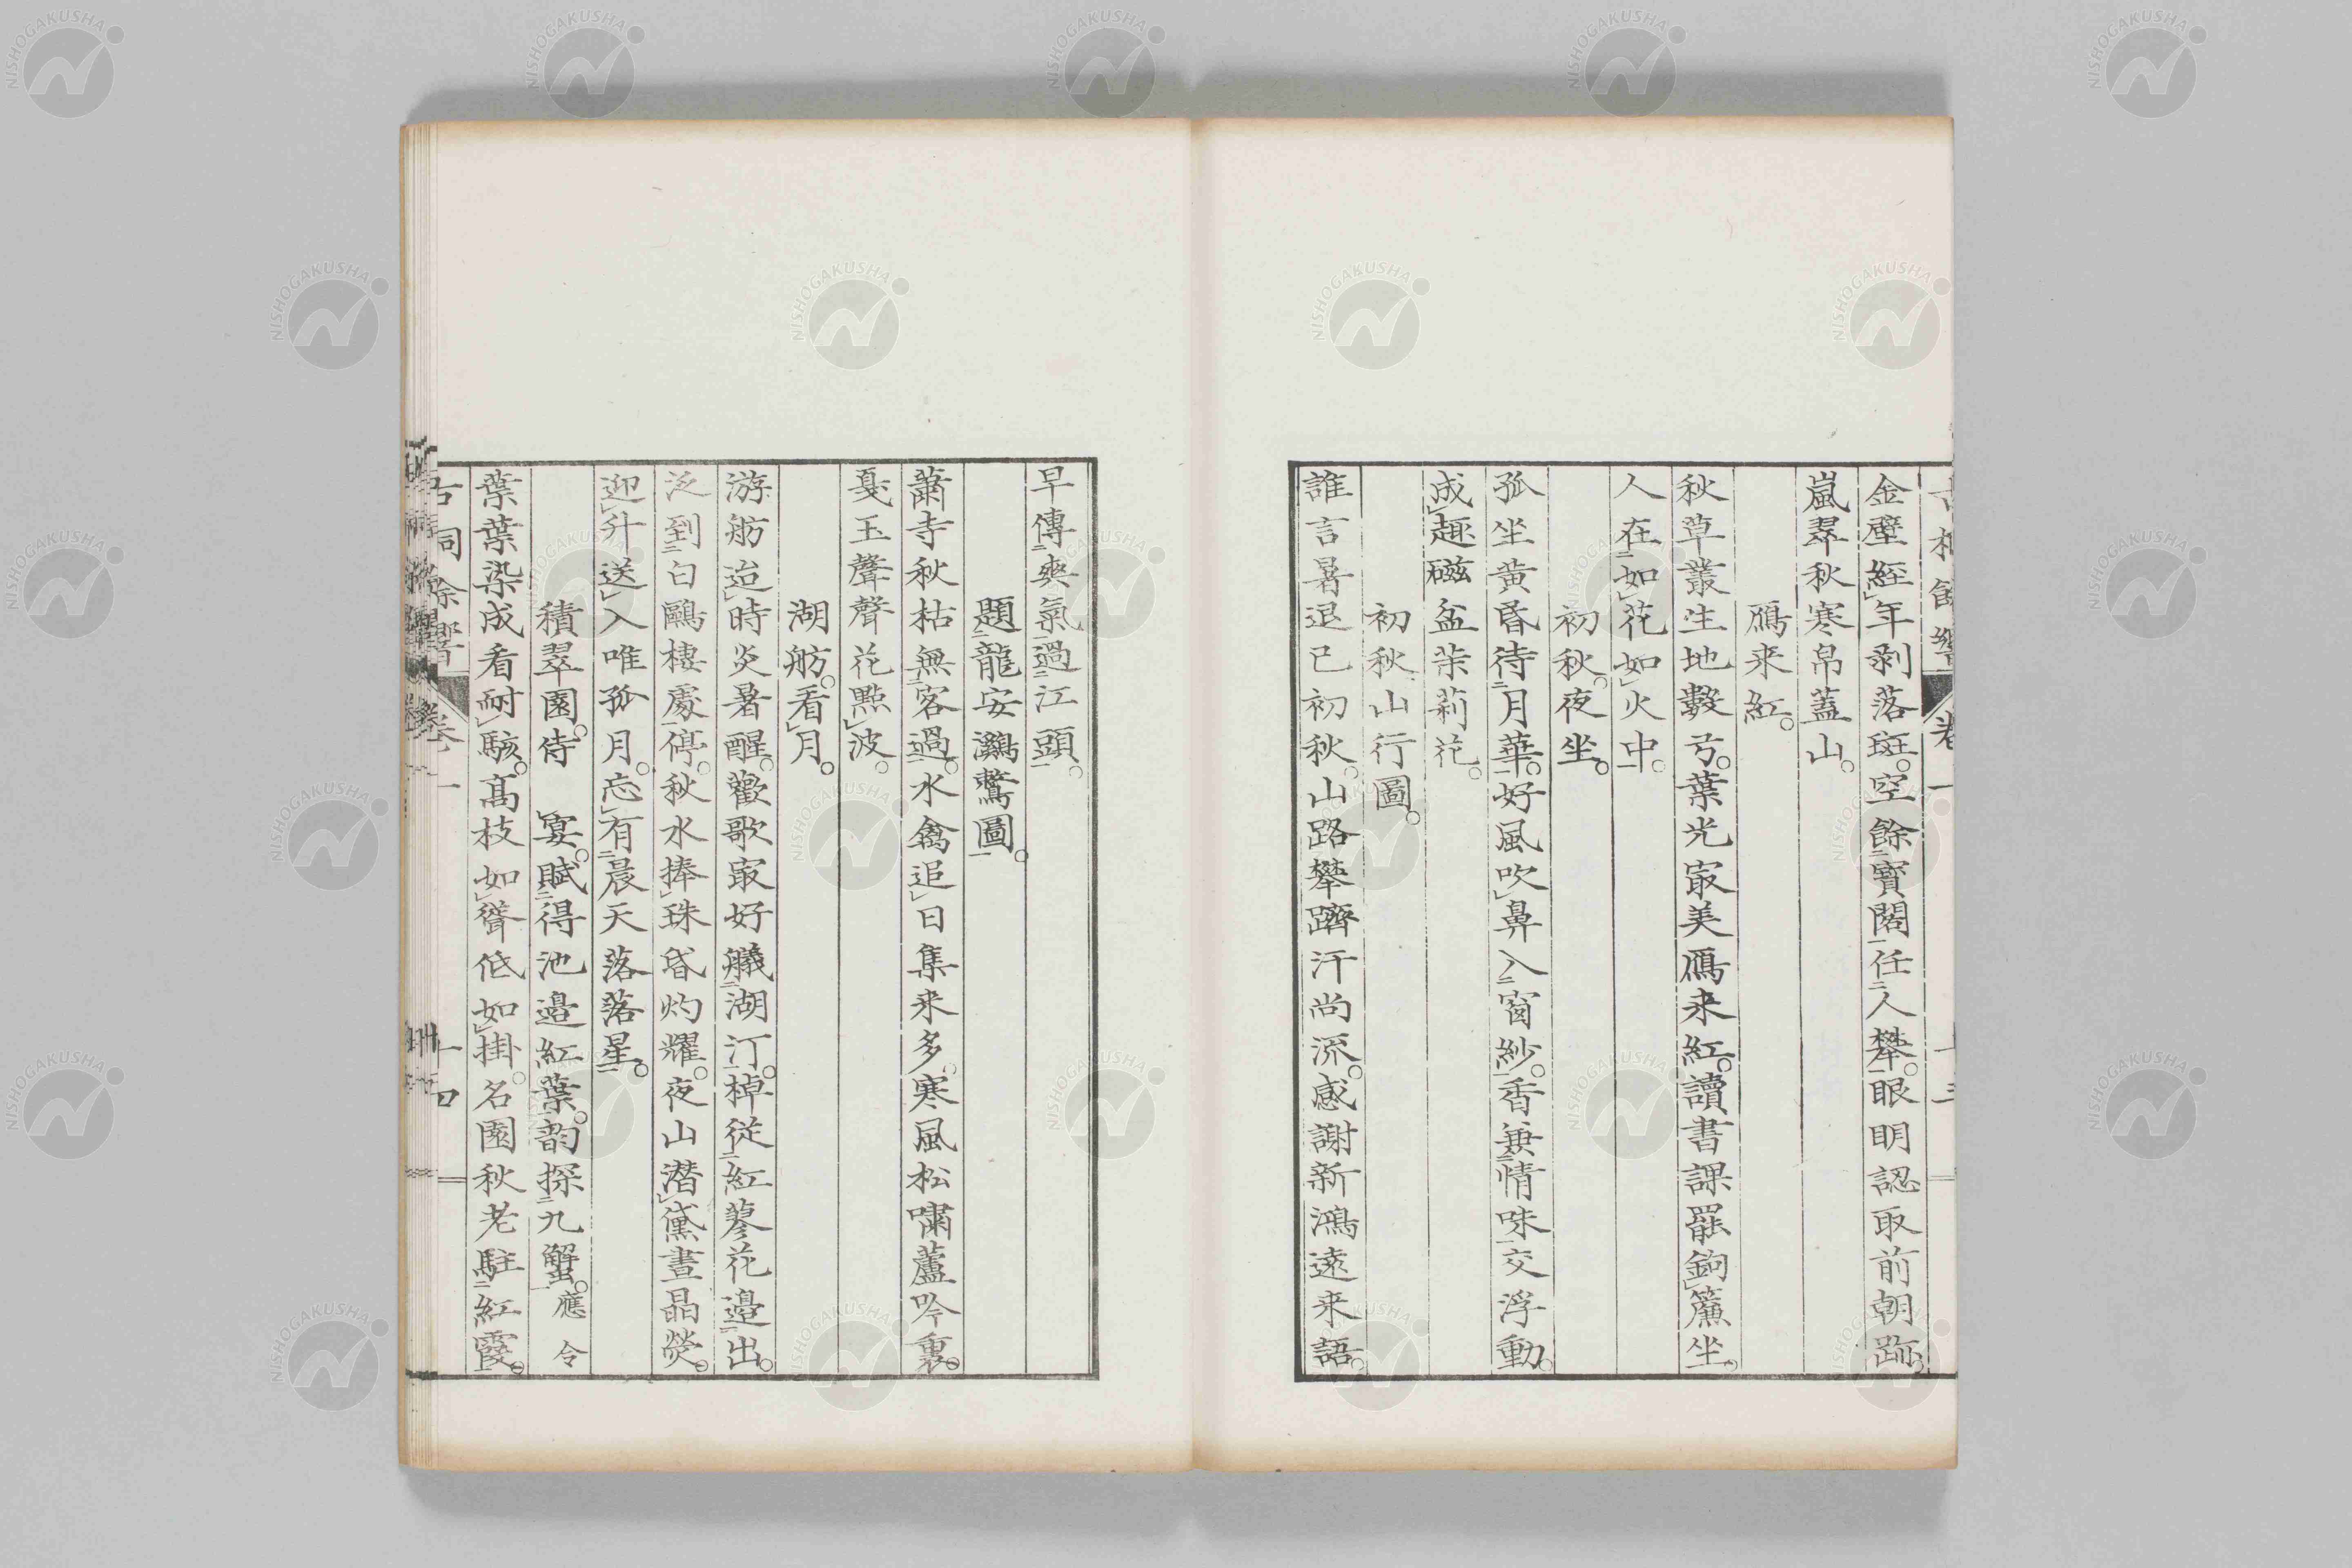 金壁經年剥落斑。空餘寳閣任人攀。眼明認取前朝跡。
嵐翠秋寒帛蓋山。
鴈来紅。
秋草叢生地數弓。葉光㝡美鴈来紅。讀書課罷鉤簾坐。
人在如花如火中。
初秋。夜坐。
孤坐黄昏待月華。好風吹鼻入窗紗。香兼情味交浮動。
成趣磁盆茉莉花。
初秋。山行圖。
誰言暑退已初秋。山路攀躋汗尚流。感謝新鴻遠来語。
早傳爽氣過江頭。
題龍安鸂鶒圖。
蕭寺秋枯無客過。水禽追日集来多。寒風松嘯蘆吟裏。
戞玉聲聲花點波。
湖舫。看月。
游舫迨時炎暑醒。歡歌㝡好艤湖汀。棹從紅蓼花邉出。
泛到白鷗棲處停。秋水捧珠昏灼耀。夜山潜黛晝晶熒。
迎升送入唯孤月。忘有晨天落落星。
積翠園。侍 宴。賦得池邉紅葉。韵探九蟹。應令
葉葉染成看耐駭。髙枝如聳低如掛。名園秋老駐紅霞。
卷一 十四